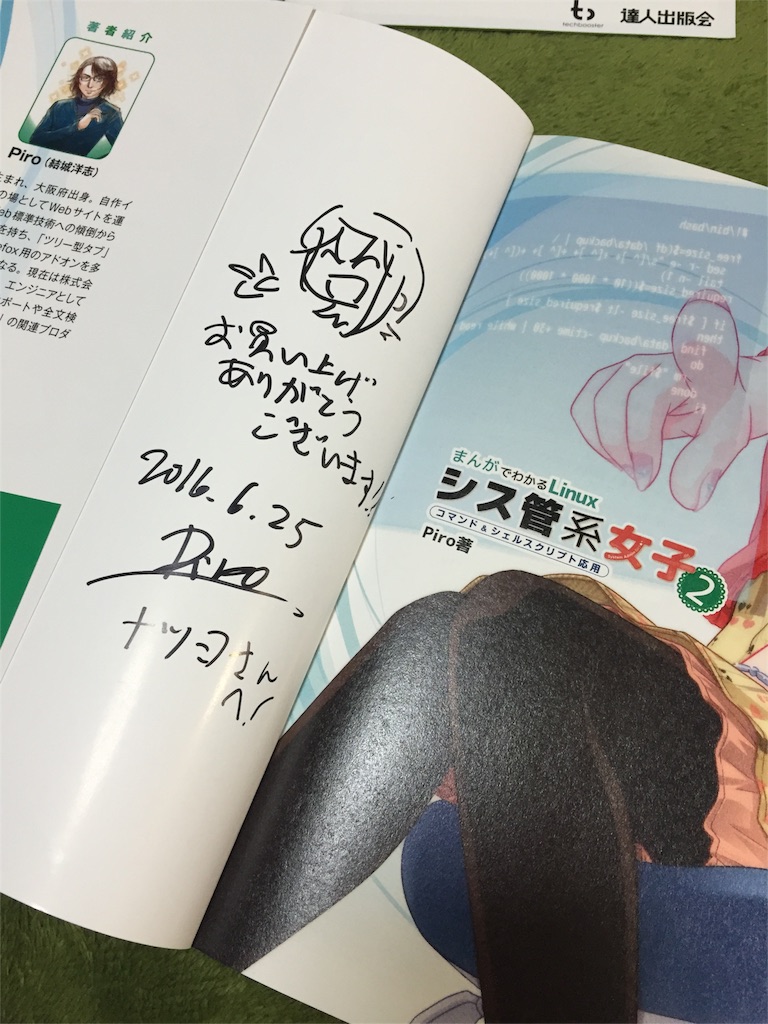 techbooster
達人出版会
著者紹介
Piro(結城洋志)
まれ、大阪府出身。自作イ
の場としてWebサイトを運
eb標準技術への傾倒から
を持ち、「ツリー型タブ」
efox用のアドオンを多
なる。現在は株式会
エンジニアとして
ポートや全文検
」の関連プロダ
お買い上げ
ありがとう
ございます!!
2016.6.25
Piro
ナツヨさん
へ!
#!/bin/bash
まんがでわかるLinux
シス管系女子2
コマンド&シェルスクリプト応用
Piro著